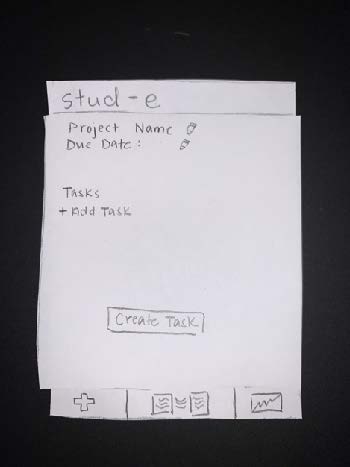 stud-e
Project Name
Due Date:
Tasks
+ Add Task
Create Task